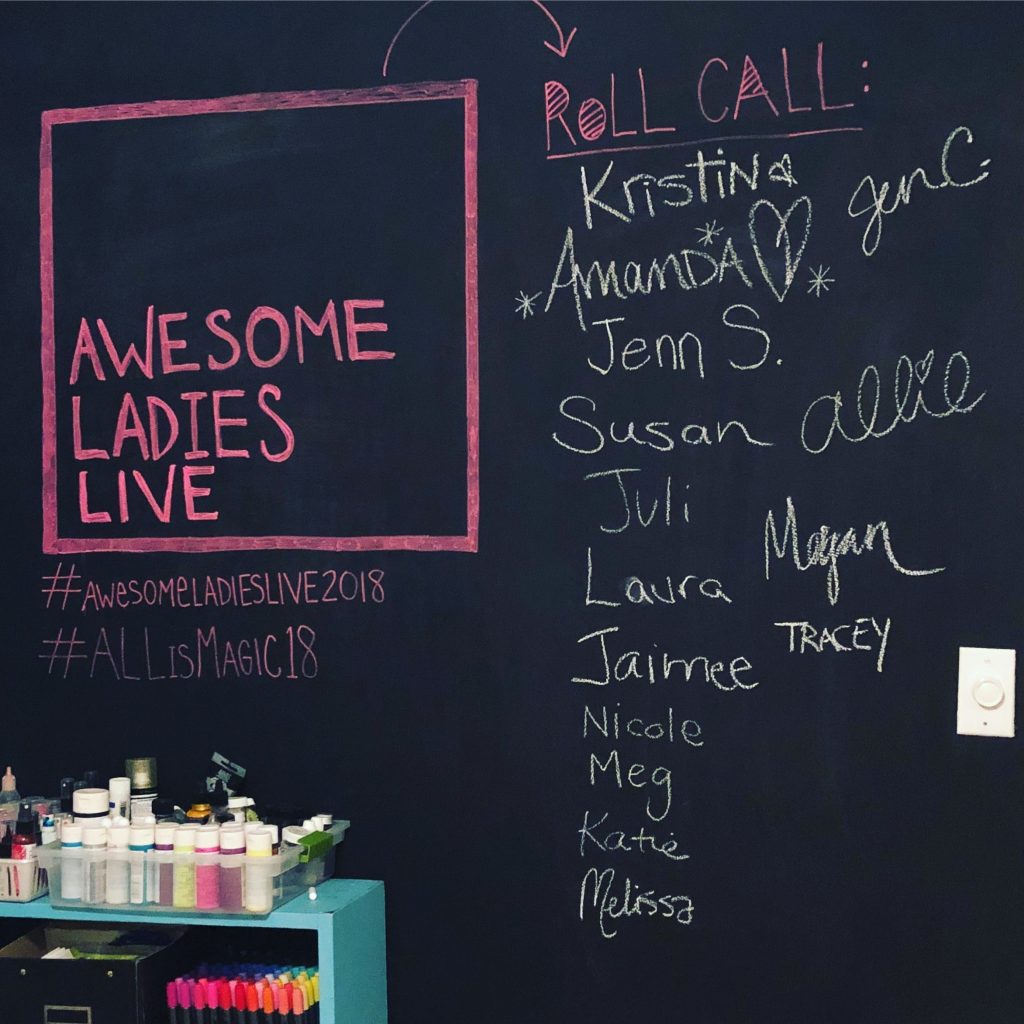 AWESOME
LADIES
LIVE
#AWESOMELADIESLIVE2018
#ALLisMAGIC18
ROLL CALL:
Kristina
Amanda
Jenn S.
Susan
Juli
Laura
Jaimee
Nicole
Meg
Katie
Melissa
Jen C.
allie
Megan
TRACEY